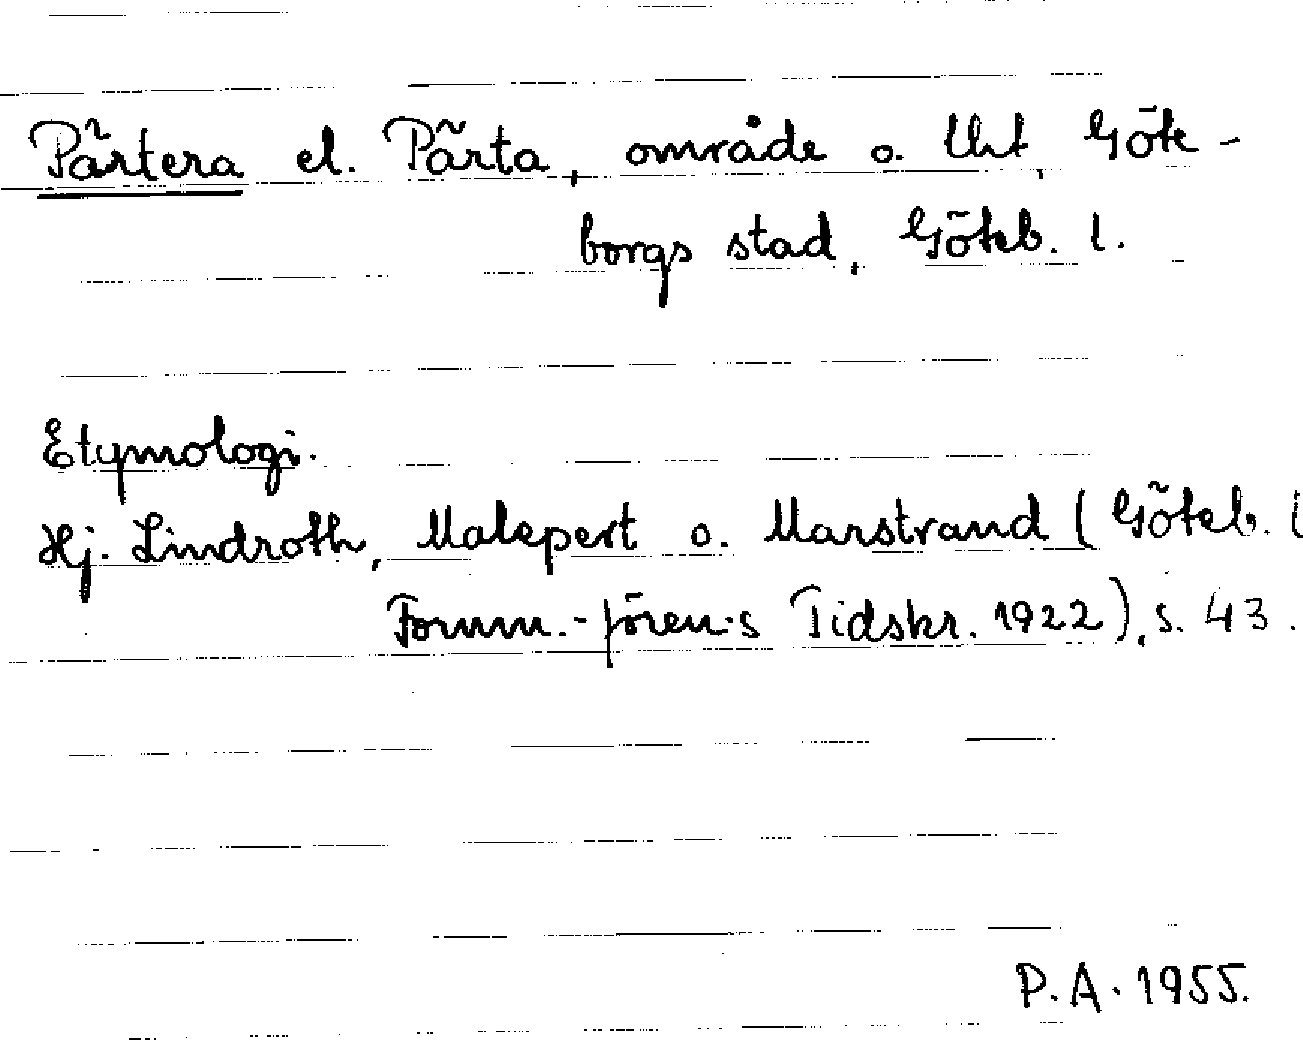 Pärtera el. Pärta, område o. tht, Göte-
borgs stad, Göteb. l.
Etymologi.
Hj. Lindroth, Malepert o. Marstrand (Göteb. l
Fornm.-fören:s Tidskr. 1922), s. 43.
P.A. 1955.